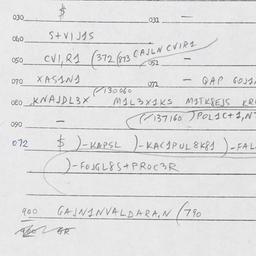 030 $ 031 —
040 S+VIJ1S
050 CVI,R1 (372(873 CAJLNCVIR1
052 —
070 XAS1N1 072 — QAP GOJ1
(/130060
080 KNAJDL3X M1L3X1KS M1TK8EJS KR
090 — (/137160 )POL1C+1,N
072 $ )-KAPSL )-KAC1PUL8K81 )-FAL
)-FOJGL8S+PROC3R
900 GAJN1NVALDARA,N (790